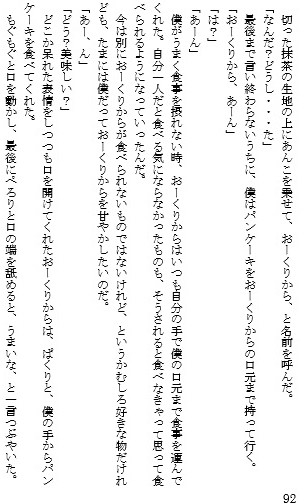 切った抹茶の生地の上にあんこを乗せて、おーくりから、と名前を呼んだ。
「なんだ？どうし・・・た」
最後まで言い終わらないうちに、僕はパンケーキをおーくりからの口元まで持って行く。
「おーくりから、あーん」
「は？」
「あーん」
僕がうまく食事を摂れない時、おーくりからはいつも自分の手で僕の口元まで食事を運んで
くれた。自分一人だと食べる気にならなかったものも、そうされると食べなきゃって思って食
べられるようになっていったんだ。
今は別におーくりからが食べられないものではないけれど、というかむしろ好きな物だけれ
ども、たまには僕だっておーくりからを甘やかしたいのだ。
「あー、ん」
「どう？美味しい？」
どこか呆れた表情をしつつも口を開けてくれたおーくりからは、ぱくりと、僕の手からパン
ケーキを食べてくれた。
もぐもぐと口を動かし、最後にぺろりと口の端を舐めると、うまいな、と一言つぶやいた。
92